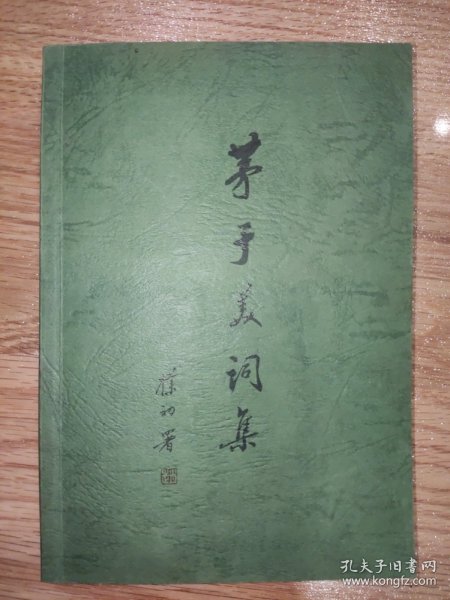 茅于美词集
朴初署
孔夫子旧书网
www.kongfz.com